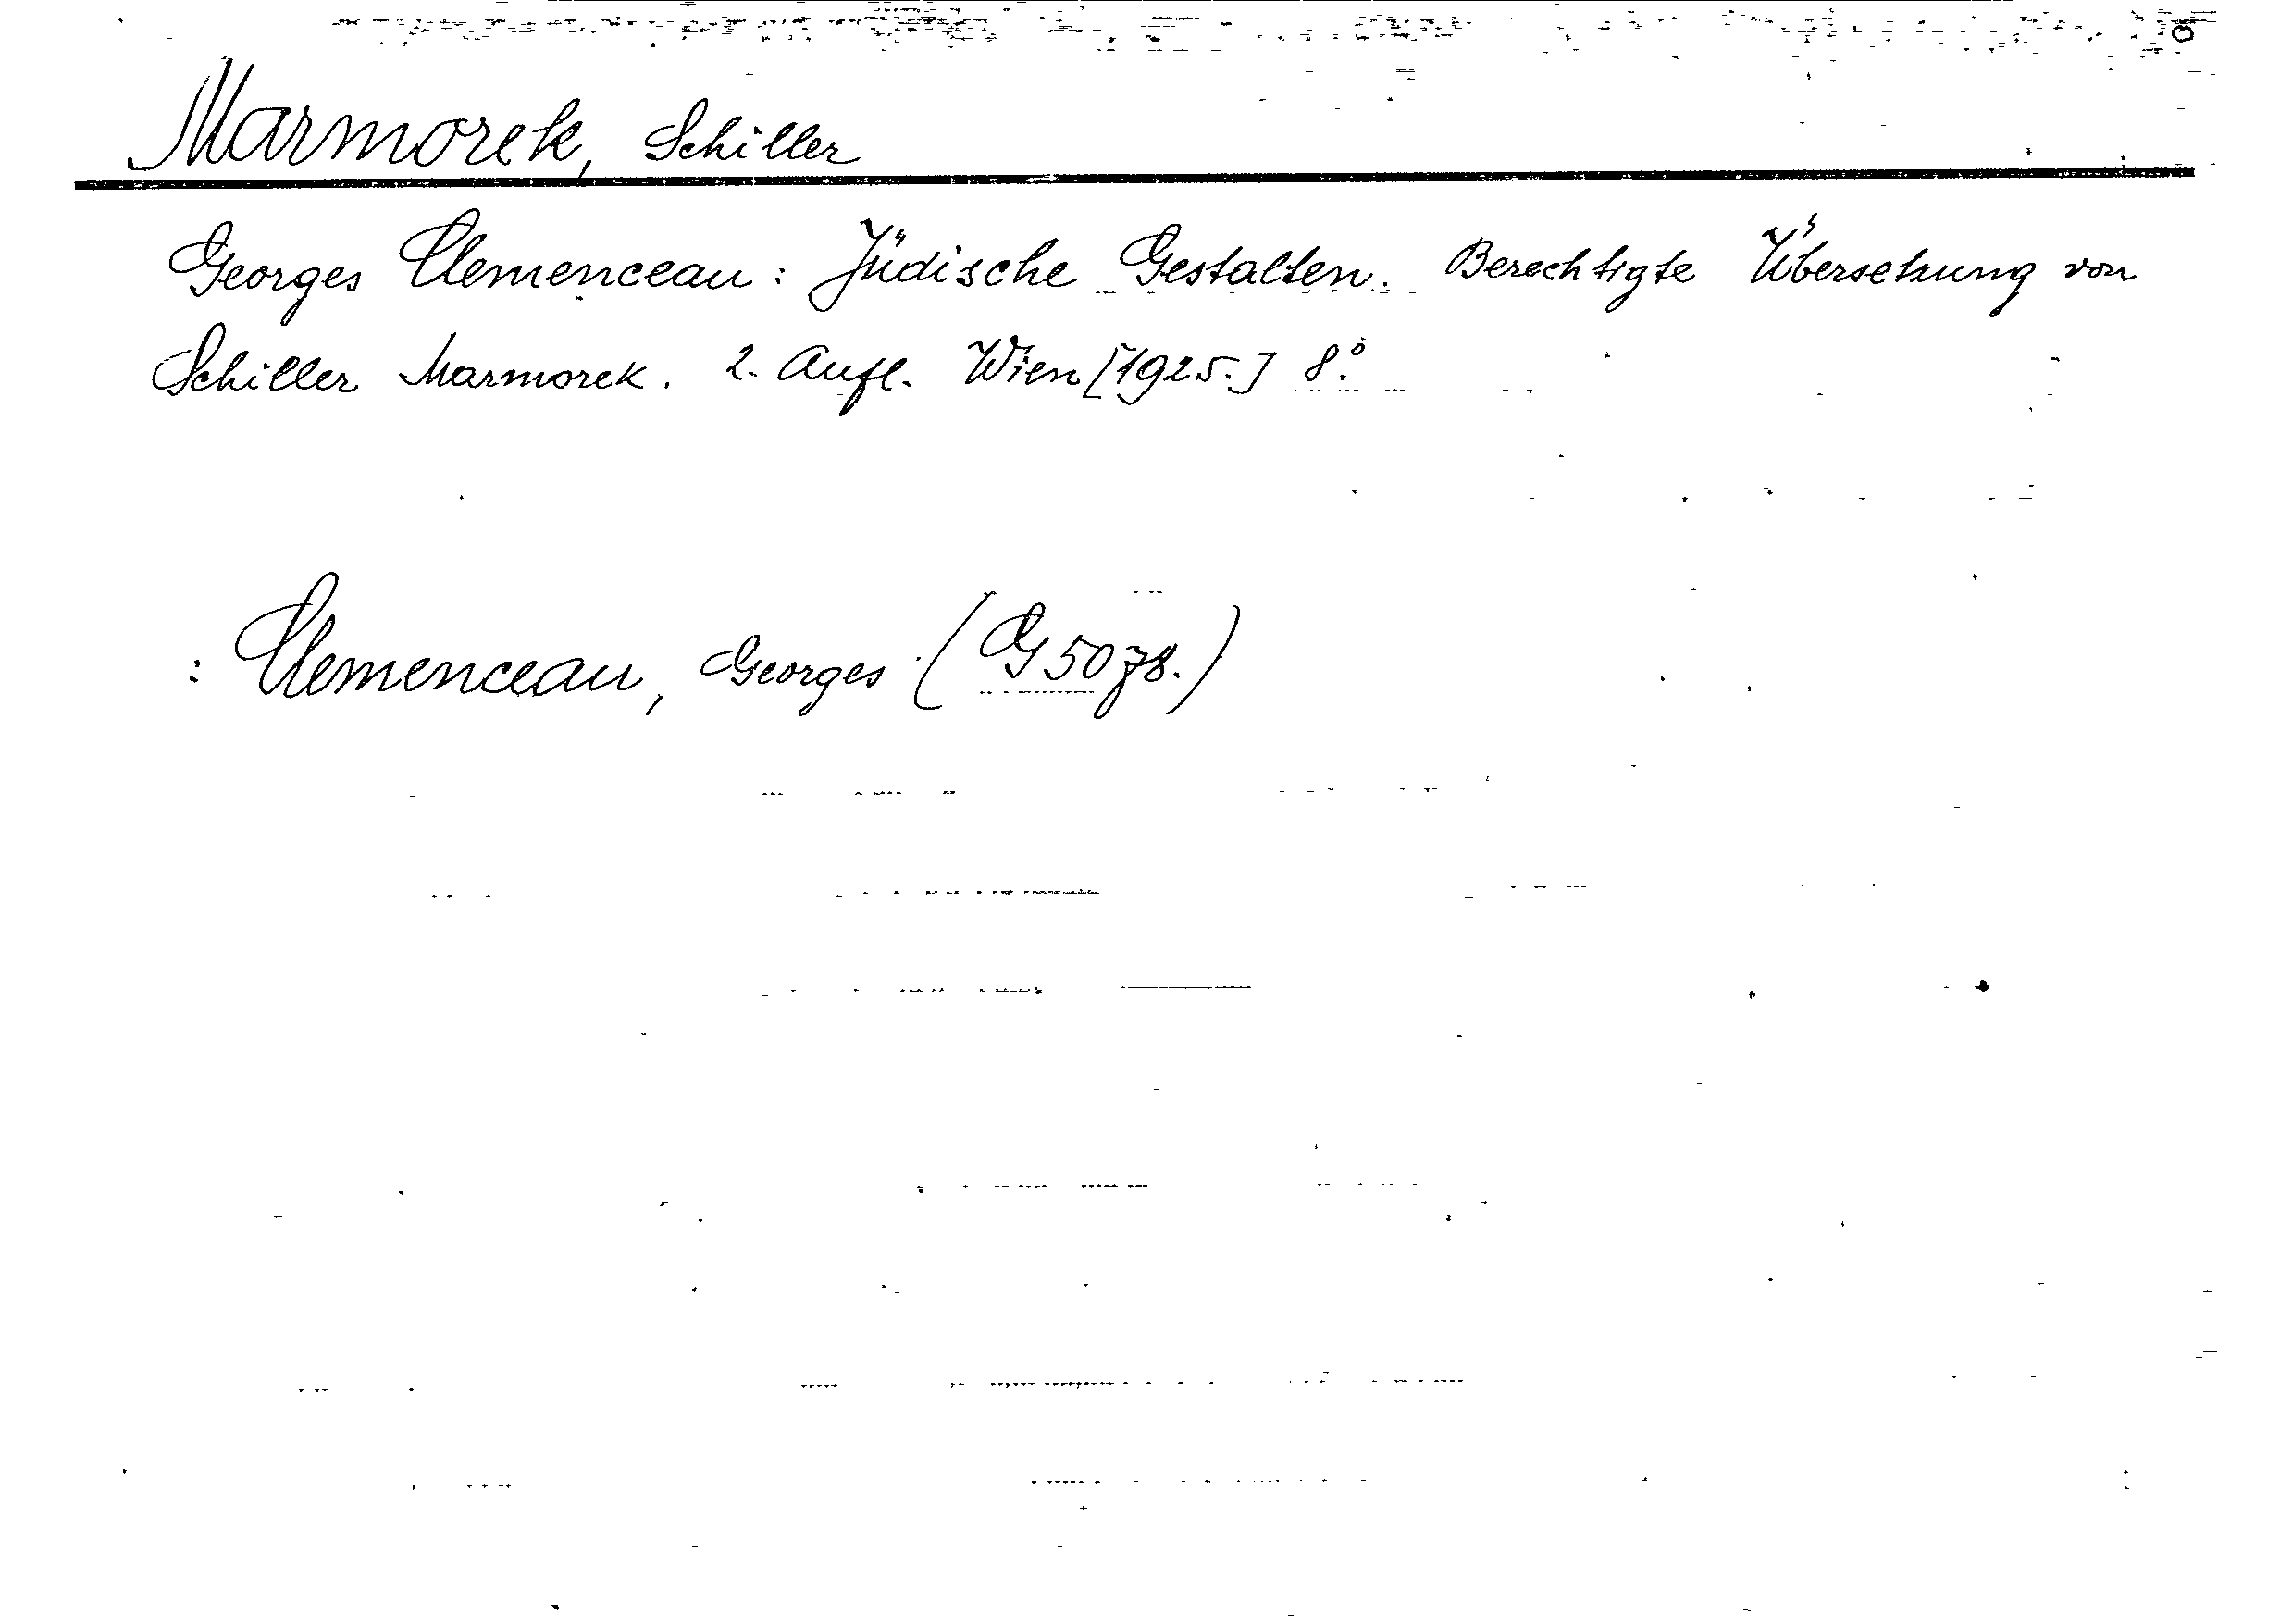 Marmorek, Schiller
Georges Clemenceau: Jüdische Gestalten. Berechtigte Übersetzung von
Schiller Marmorek. 2. Aufl. Wien [1925.] 8.°
: Clemenceau, Georges (G 5078.)